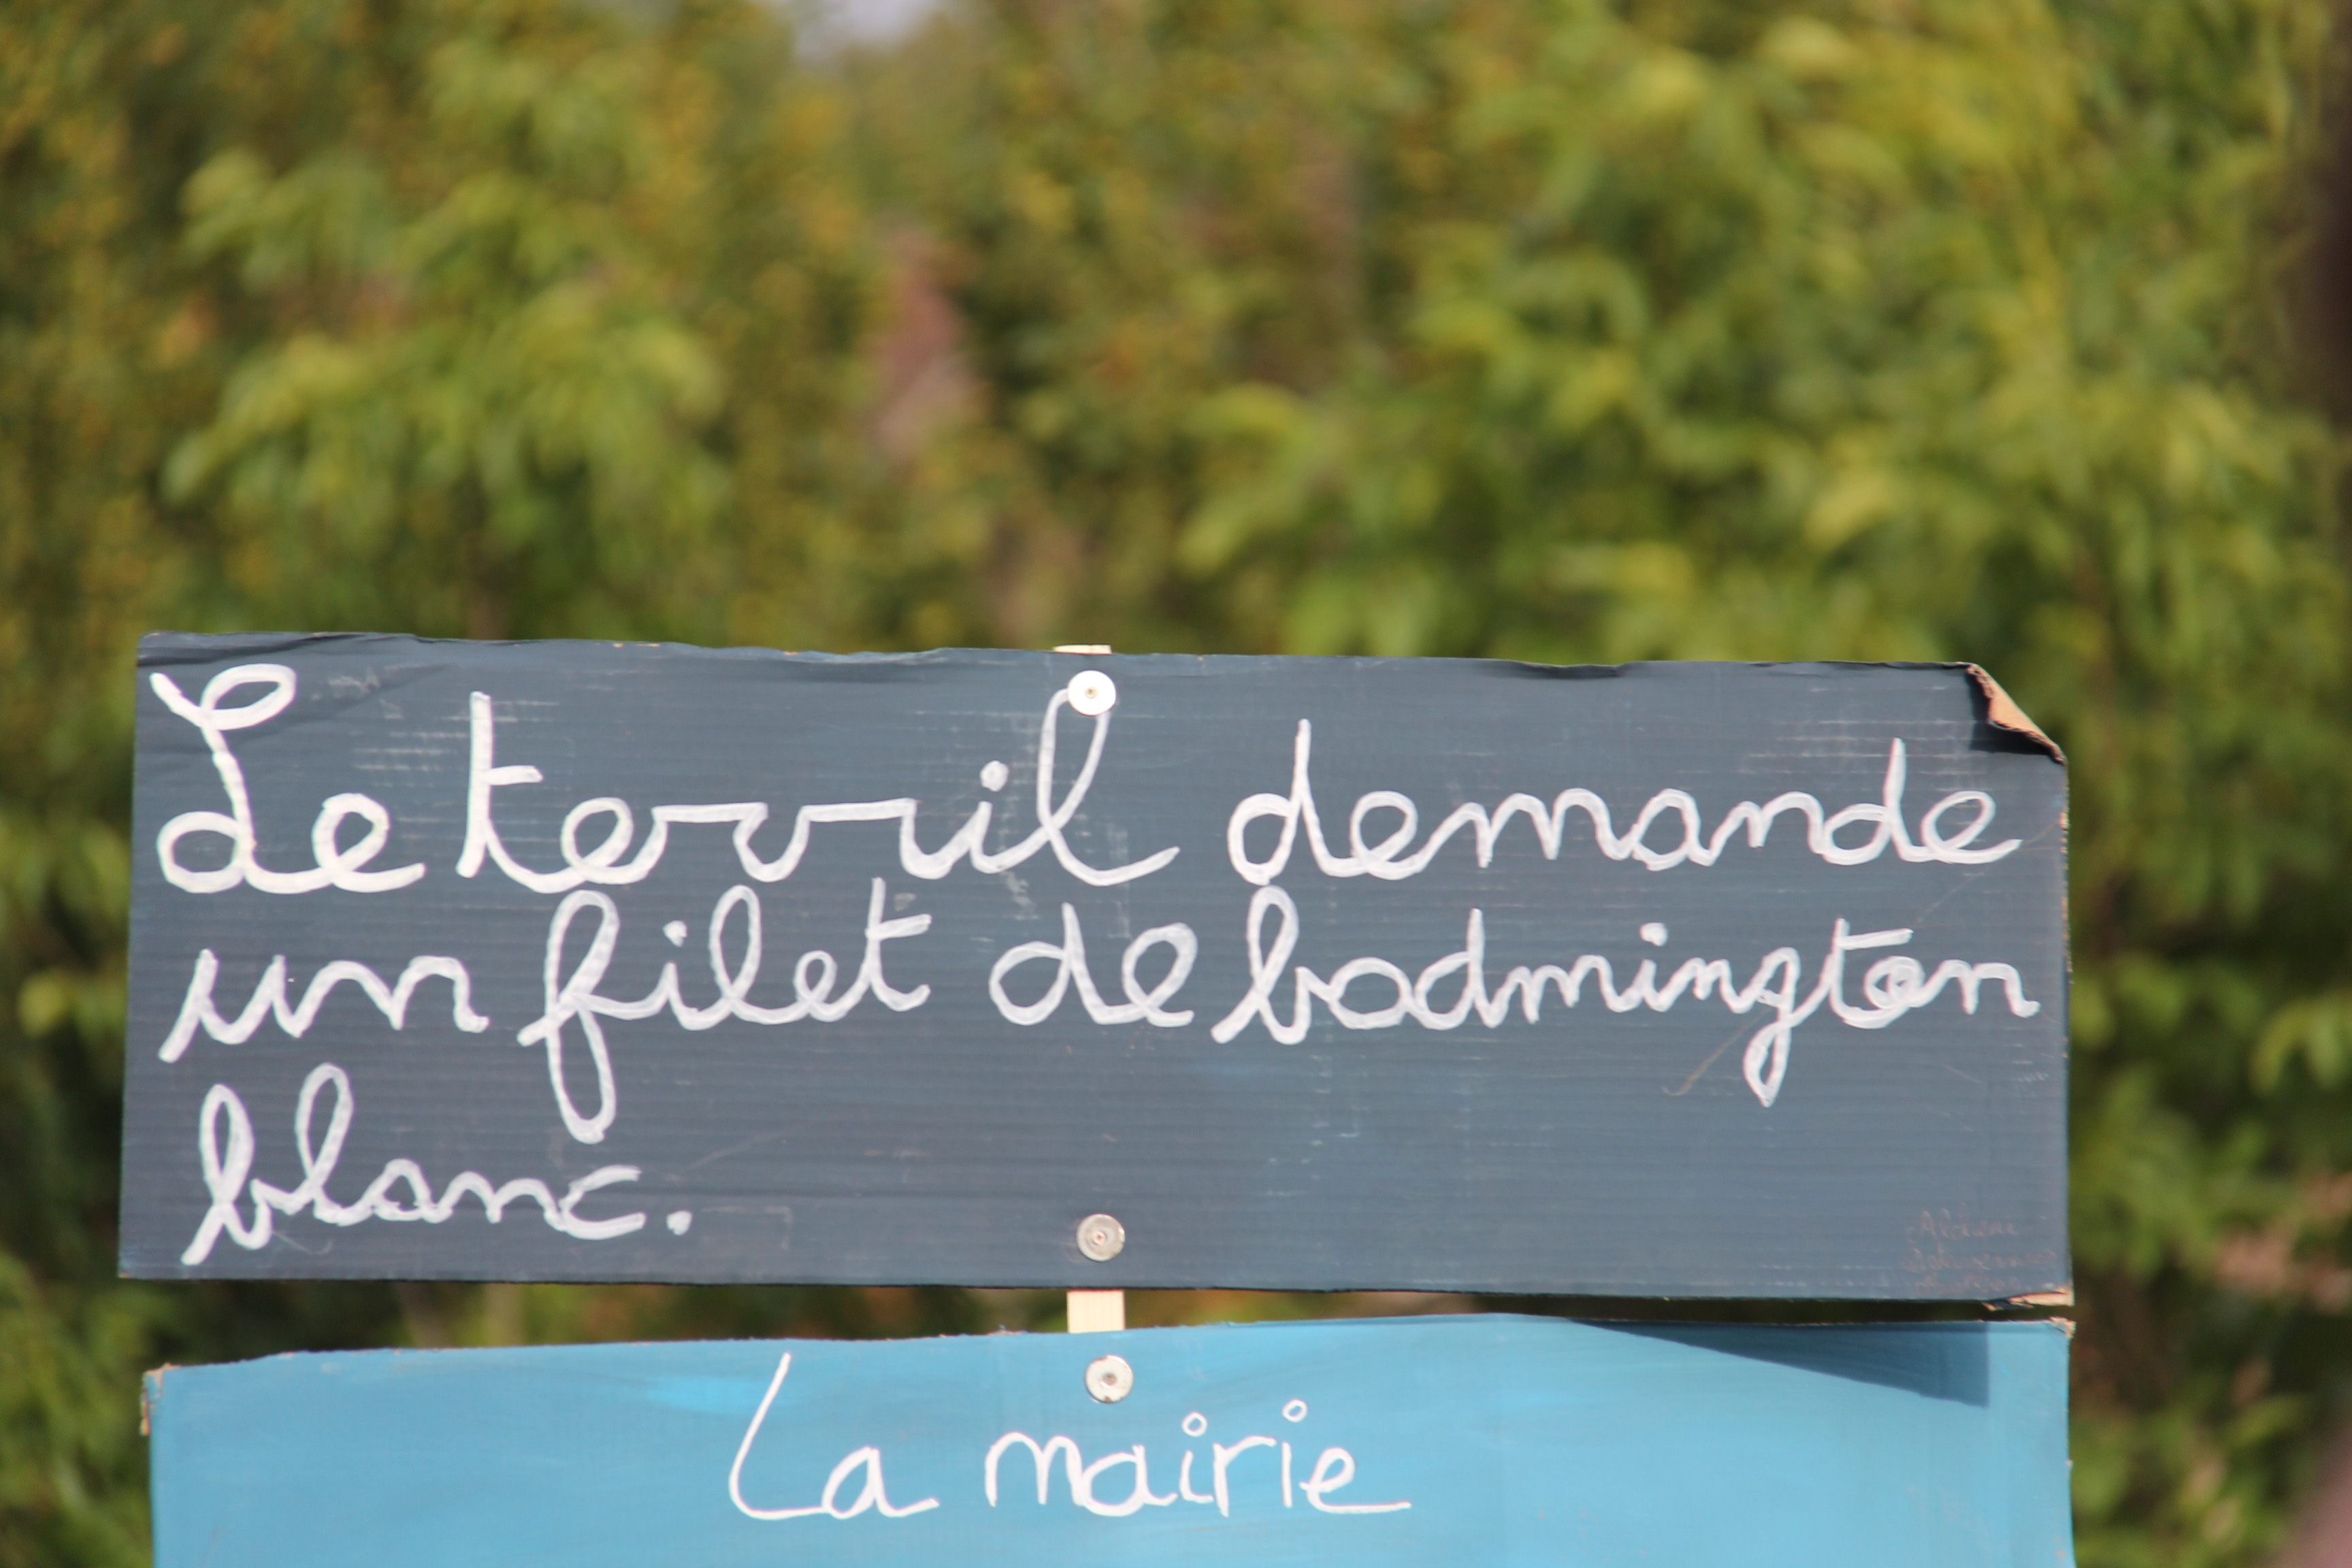 Le terril demande
un filet de badmington
blanc.
La mairie